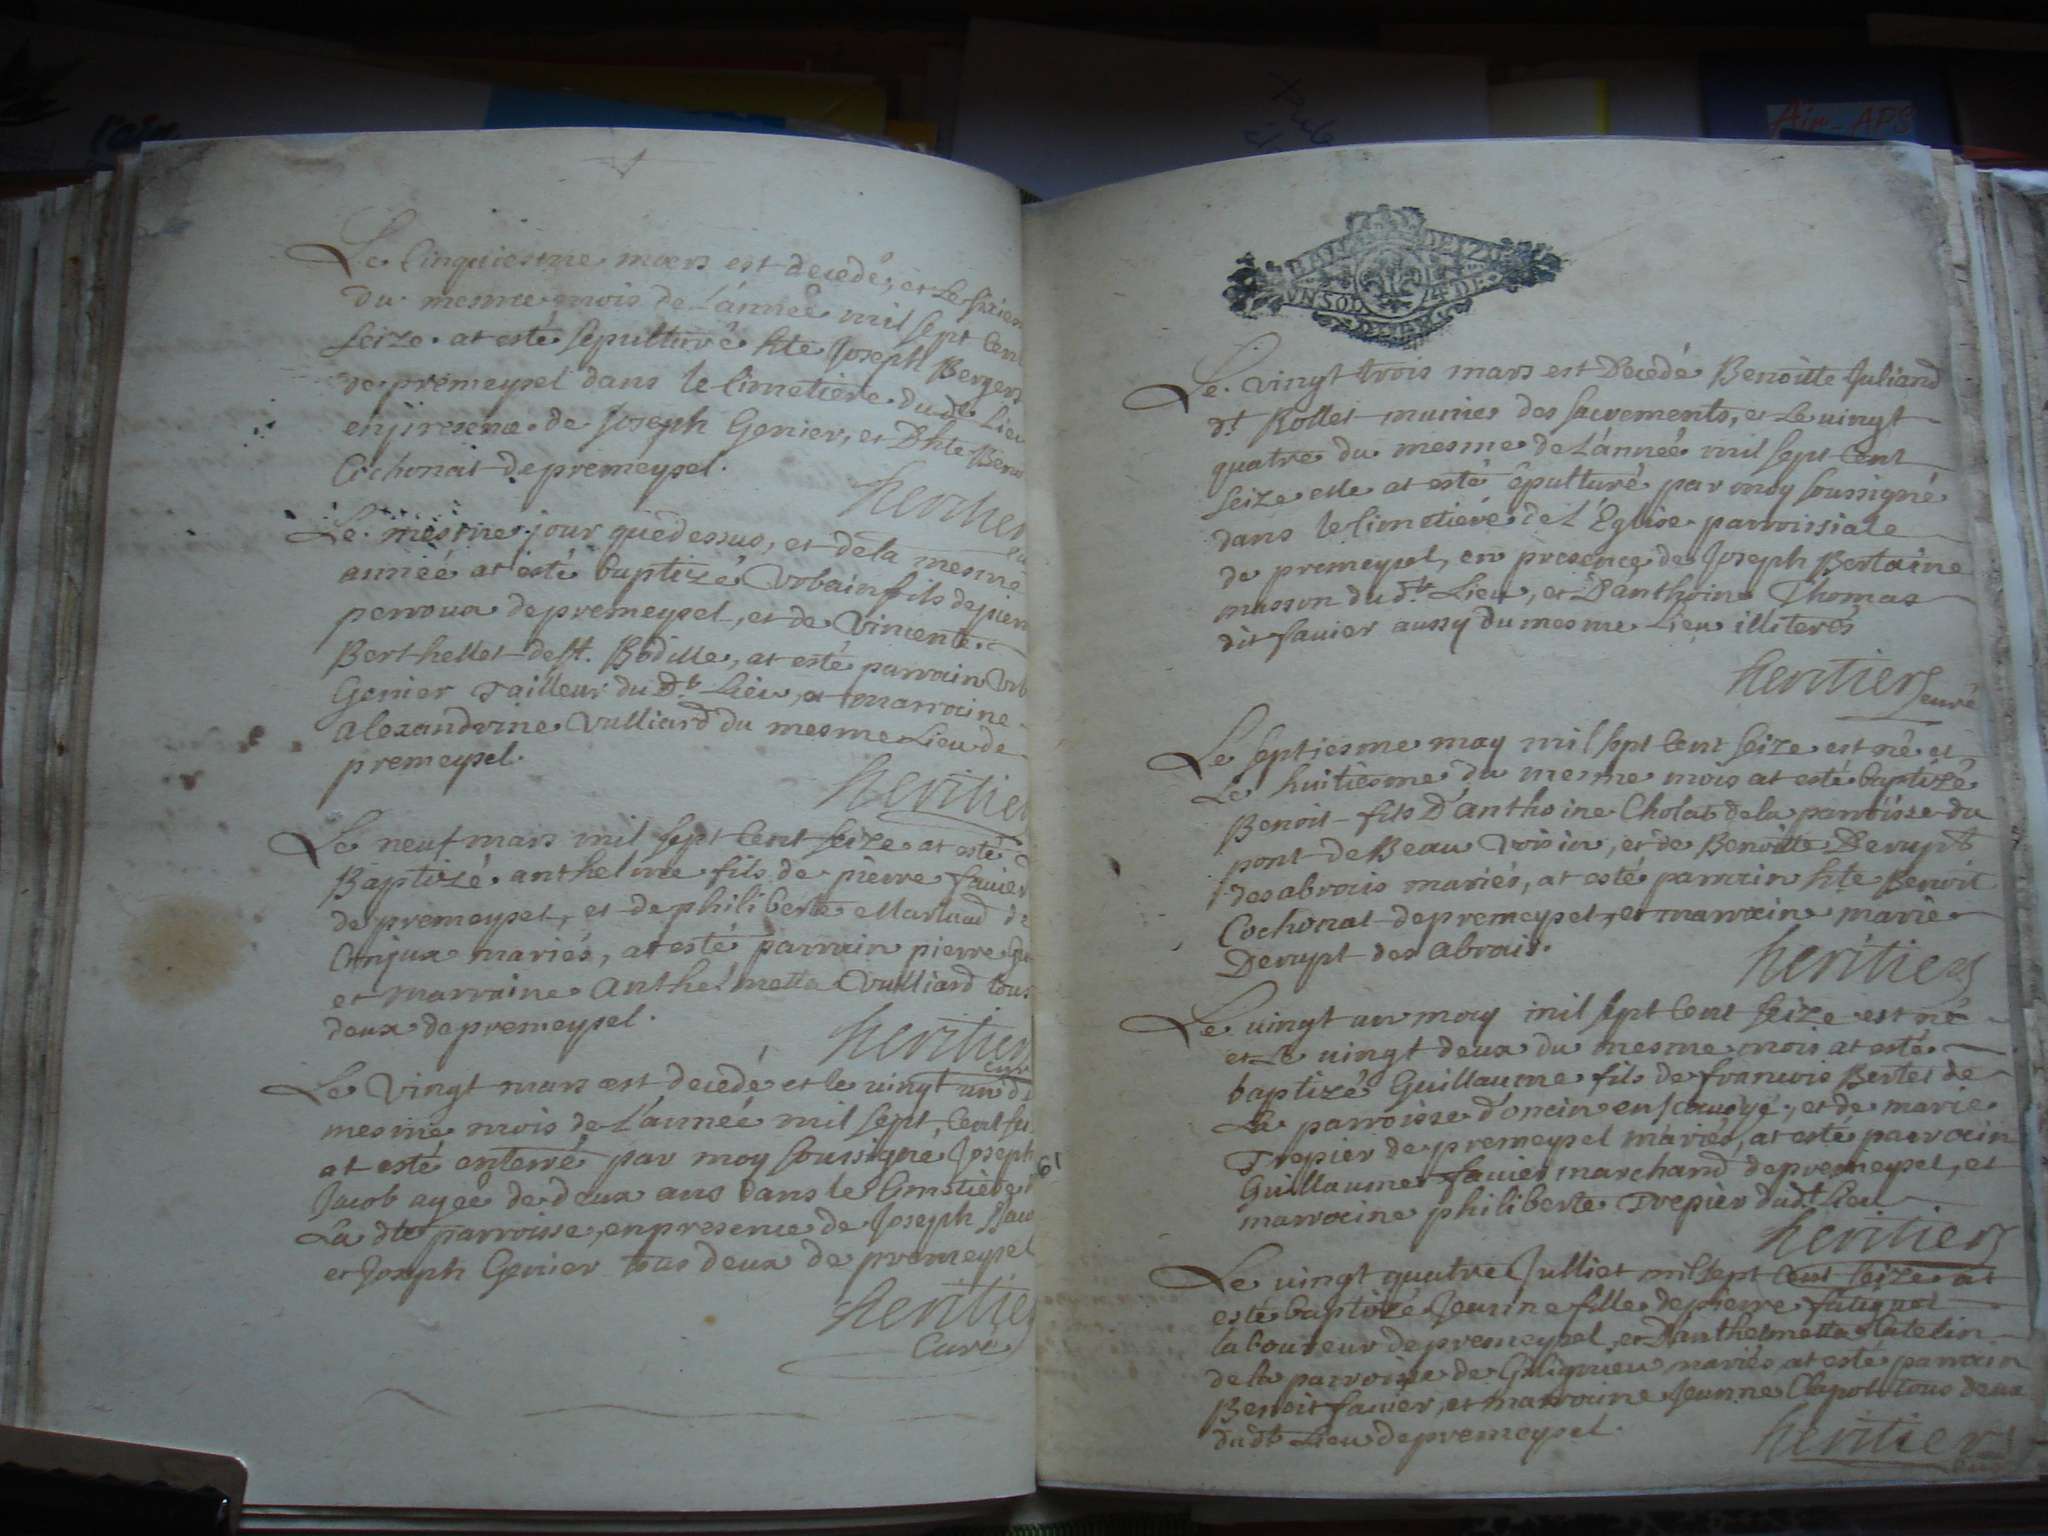 Le Cinquiesme mars est decedé, et Le sixiem
du mesme mois de L'année mil sept Cent
seize at esté sepulturé hte Joseph Berger
de premeysel dans le Cimetiere du dt Lieu
en presence de Joseph Genier, et D'hte Beno
Cochonat de premeysel.
heritier
Le mesme jour que dessus, et de la mesme
année at esté baptizé Urbain fils de pierr
perroux de premeysel, et de Vincente
Berthellet de st. Bodille, at esté parrain Urb
Genier Tailleur du dt Lieu, et marraine
alexandrine Vulliard du mesme Lieu de
premeysel.
heritier
Le neuf mars mil sept Cent seize at esté
Baptizé anthelme fils de pierre favier
de premeysel, et de philiberte Martaud de
Conjux mariés, at esté parrain pierre
et marraine Anthelmetta Vulliard tous
deux de premeysel.
heritier
cur
Le Vingt mars est decedé et le vingt un d
mesme mois de L'année mil sept Cent se
at esté enterré par moy soussigné Joseph
Jacob agée de deux ans dans le Cimetiere
La dte parroisse, en presence de Joseph
et Joseph Genier tous deux de premeysel
heritier
Curé
61
UN SOD 4 DE
Le vingt trois mars est Decedé Benoitte Juliand
dt Rollet munies des sacrements, et Le vingt
quatre du mesme de L'année mil sept Cent
seize elle at esté sepulturé par moy soussigné
dans le Cimetiere de L'Eglise parroissiale
de premeysel, en presence de Joseph Bertaine
masson du dt Lieu, et D'anthoine Thomas
dit favier aussy du mesme Lieu illiterés
heritier curé
Le septiesme may mil sept Cent seize est né et
Le huitiesme du mesme mois at esté baptizé
Benoit fils D'anthoine Cholat de la parroisse du
pont de Beau Voisin, et de Benoitte Derupt
des abrois mariés, at esté parrain hte Benoit
Cochonat de premeysel, et marraine marie
Derupt des abrois.
heritier
Le vingt un may mil sept Cent seize est né
et Le vingt deux du mesme mois at esté
baptizé Guillaume fils de francois Bertet de
La parroisse d'oncin en scavoye, et de marie
Trepier de premeysel mariés, at esté parrain
Guillaume favier marchand de premeysel, et
marraine philiberte Trepier du dt Lieu
heritier
Le vingt quatre Julliet mil sept Cent seize at
esté baptizé Jeanne fille de pierre
laboureur de premeysel, et D'anthelmetta Catelin
de la parroisse de Gelignieu mariés at esté parrain
Benoit favier, et marraine Jeanne Clapot tous deux
du dt Lieu de premeysel.
heritier
Air-APS